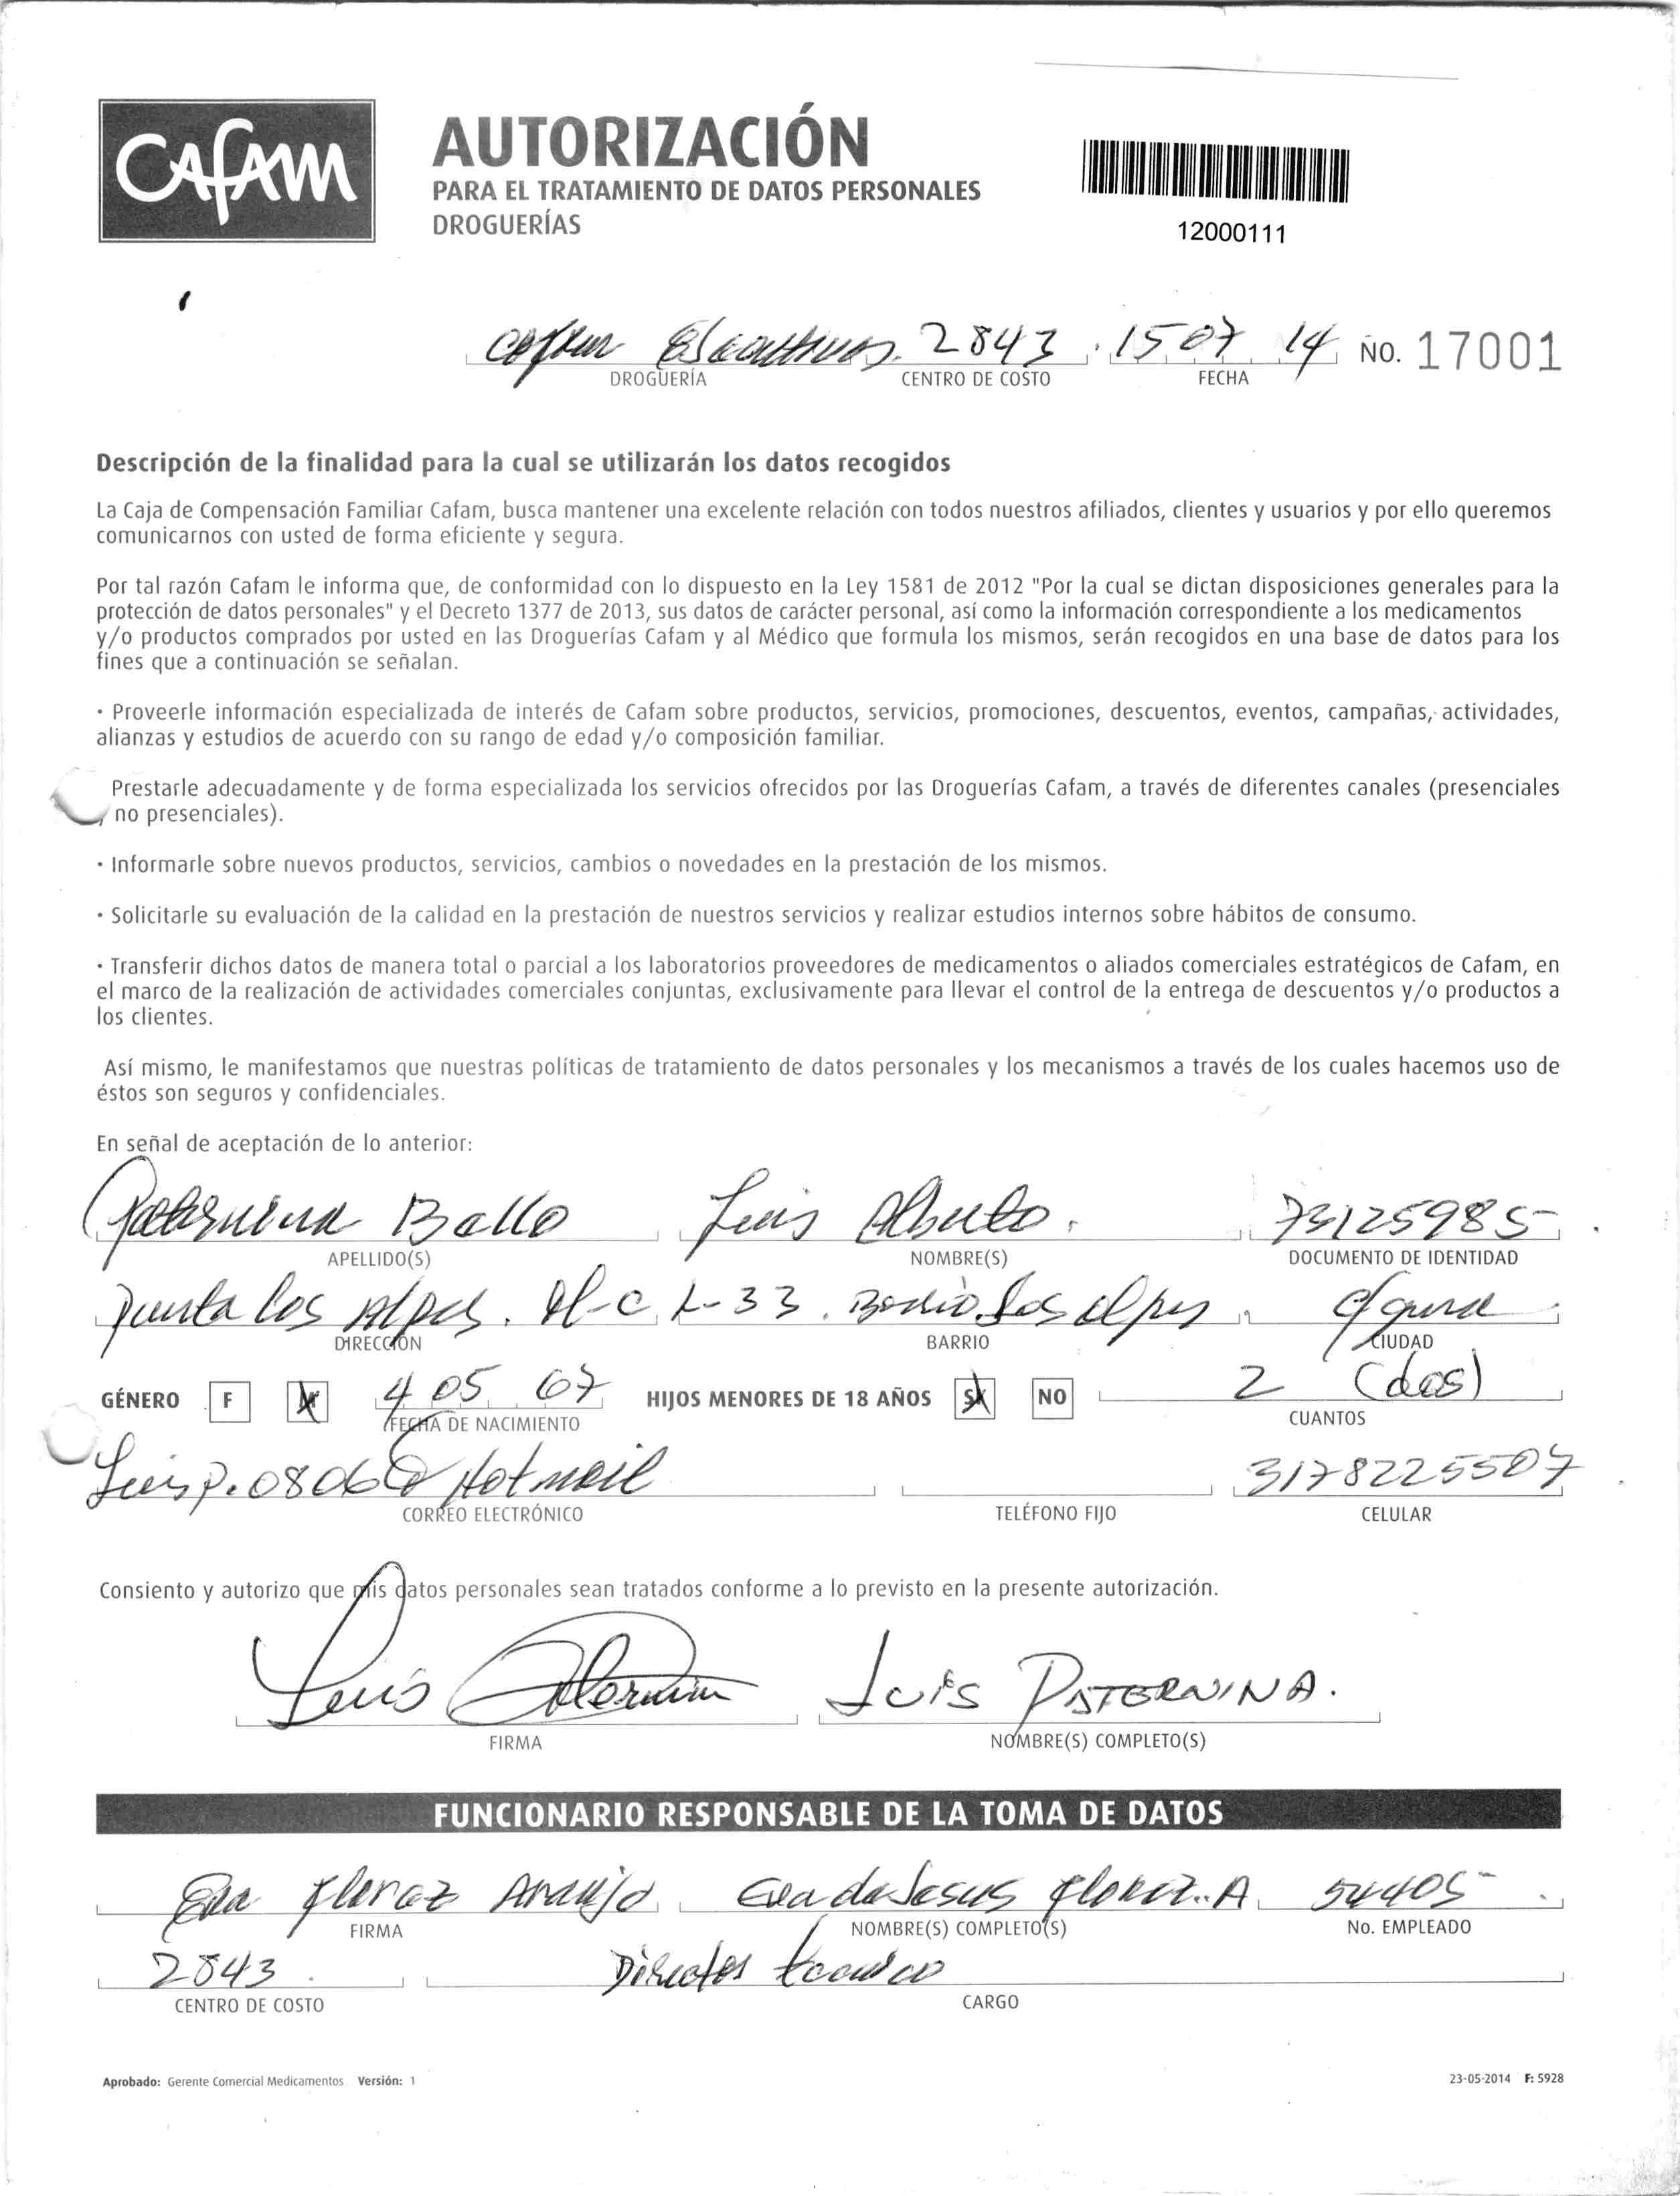 Cafam
AUTORIZACIÓN
PARA EL TRATAMIENTO DE DATOS PERSONALES
DROGUERÍAS
12000111
Cafam 2843 . 15 07 14 No. 17001
DROGUERÍA CENTRO DE COSTO FECHA
Descripción de la finalidad para la cual se utilizarán los datos recogidos
La Caja de Compensación Familiar Cafam, busca mantener una excelente relación con todos nuestros afiliados, clientes y usuarios y por ello queremos
comunicarnos con usted de forma eficiente y segura.
Por tal razón Cafam le informa que, de conformidad con lo dispuesto en la Ley 1581 de 2012 "Por la cual se dictan disposiciones generales para la
protección de datos personales" y el Decreto 1377 de 2013, sus datos de carácter personal, así como la información correspondiente a los medicamentos
y/o productos comprados por usted en las Droguerías Cafam y al Médico que formula los mismos, serán recogidos en una base de datos para los
fines que a continuación se señalan.
· Proveerle información especializada de interés de Cafam sobre productos, servicios, promociones, descuentos, eventos, campañas, actividades,
alianzas y estudios de acuerdo con su rango de edad y/o composición familiar.
Prestarle adecuadamente y de forma especializada los servicios ofrecidos por las Droguerías Cafam, a través de diferentes canales (presenciales
no presenciales).
· Informarle sobre nuevos productos, servicios, cambios o novedades en la prestación de los mismos.
· Solicitarle su evaluación de la calidad en la prestación de nuestros servicios y realizar estudios internos sobre hábitos de consumo.
· Transferir dichos datos de manera total o parcial a los laboratorios proveedores de medicamentos o aliados comerciales estratégicos de Cafam, en
el marco de la realización de actividades comerciales conjuntas, exclusivamente para llevar el control de la entrega de descuentos y/o productos a
los clientes.
Así mismo, le manifestamos que nuestras políticas de tratamiento de datos personales y los mecanismos a través de los cuales hacemos uso de
éstos son seguros y confidenciales.
En señal de aceptación de lo anterior:
Paternina Bello Luis Alberto. 73125985
APELLIDO(S) NOMBRE(S) DOCUMENTO DE IDENTIDAD
punta los Alpes. M-C L-33. Barrio los alpes.
DIRECCIÓN BARRIO CIUDAD
GÉNERO F M 4 05 67 HIJOS MENORES DE 18 AÑOS SI NO 2 (dos)
FECHA DE NACIMIENTO CUANTOS
Luisp.0806@Hotmail 3178225507
CORREO ELECTRÓNICO TELÉFONO FIJO CELULAR
Consiento y autorizo que mis datos personales sean tratados conforme a lo previsto en la presente autorización.
Luis Luis PATERNINA.
FIRMA NOMBRE(S) COMPLETO(S)
FUNCIONARIO RESPONSABLE DE LA TOMA DE DATOS
Eva Florez Araujo Eva de Jesus Florez. A 54405
FIRMA NOMBRE(S) COMPLETO(S) No. EMPLEADO
2843 Director tecnico
CENTRO DE COSTO CARGO
Aprobado: Gerente Comercial Medicamentos Versión: 1 23-05-2014 F: 5928